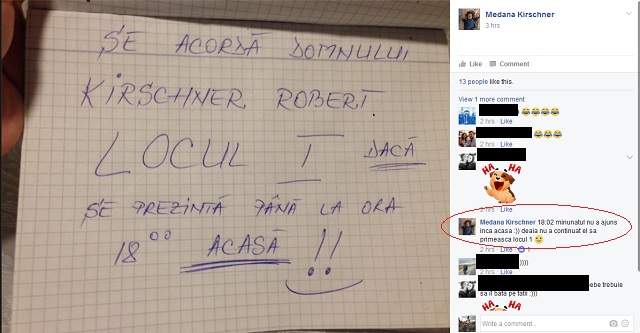 SE ACORDĂ DOMNULUI
KIRSCHNER ROBERT
LOCUL I DACĂ
SE PREZINTĂ PÂNĂ LA ORA
18⁰⁰ ACASĂ !!
Medana Kirschner
3 hrs
Like Comment
13 people like this.
View 1 more comment
2 hrs · Like
2 hrs · Like
2 hrs · Like
HA HA
Medana Kirschner 18:02 minunatul nu a ajuns
inca acasa :)) deaia nu a continuat el sa
primeasca locul 1
2 hrs · Like · 1
))))
2 hrs · Like
ebe trebuie
sa il bata pe tatii :)))
HA HA
Write a comment...